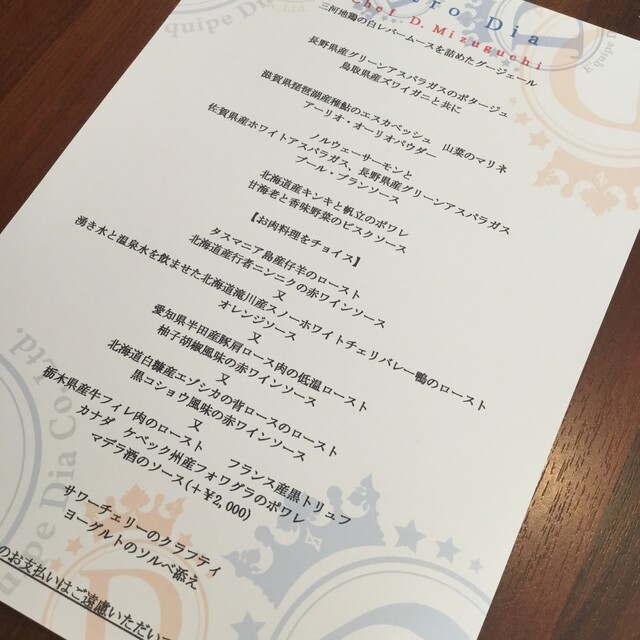 ro Dia
Chef D. Mizuguchi
三河地鶏の白レバームースを詰めたグージェール
長野県産グリーンアスパラガスのポタージュ
鳥取県産ズワイガニと共に
滋賀県琵琶湖産稚鮎のエスカベッシュ　山菜のマリネ
アーリオ・オーリオパウダー
ノルウェーサーモンと
佐賀県産ホワイトアスパラガス、長野県産グリーンアスパラガス
ブール・ブランソース
北海道産キンキと帆立のポワレ
甘海老と香味野菜のビスクソース
【お肉料理をチョイス】
タスマニア島産仔羊のロースト
北海道産行者ニンニクの赤ワインソース
又
湧き水と温泉水を飲ませた北海道滝川産スノーホワイトチェリバレー鴨のロースト
オレンジソース
又
愛知県半田産豚肩ロース肉の低温ロースト
柚子胡椒風味の赤ワインソース
又
北海道白糠産エゾシカの背ロースのロースト
黒コショウ風味の赤ワインソース
又
栃木県産牛フィレ肉のロースト　フランス産黒トリュフ
カナダ　ケベック州産フォワグラのポワレ
マデラ酒のソース(+￥2,000)
サワーチェリーのクラフティ
ヨーグルトのソルベ添え
のお支払いはご遠慮いただいて